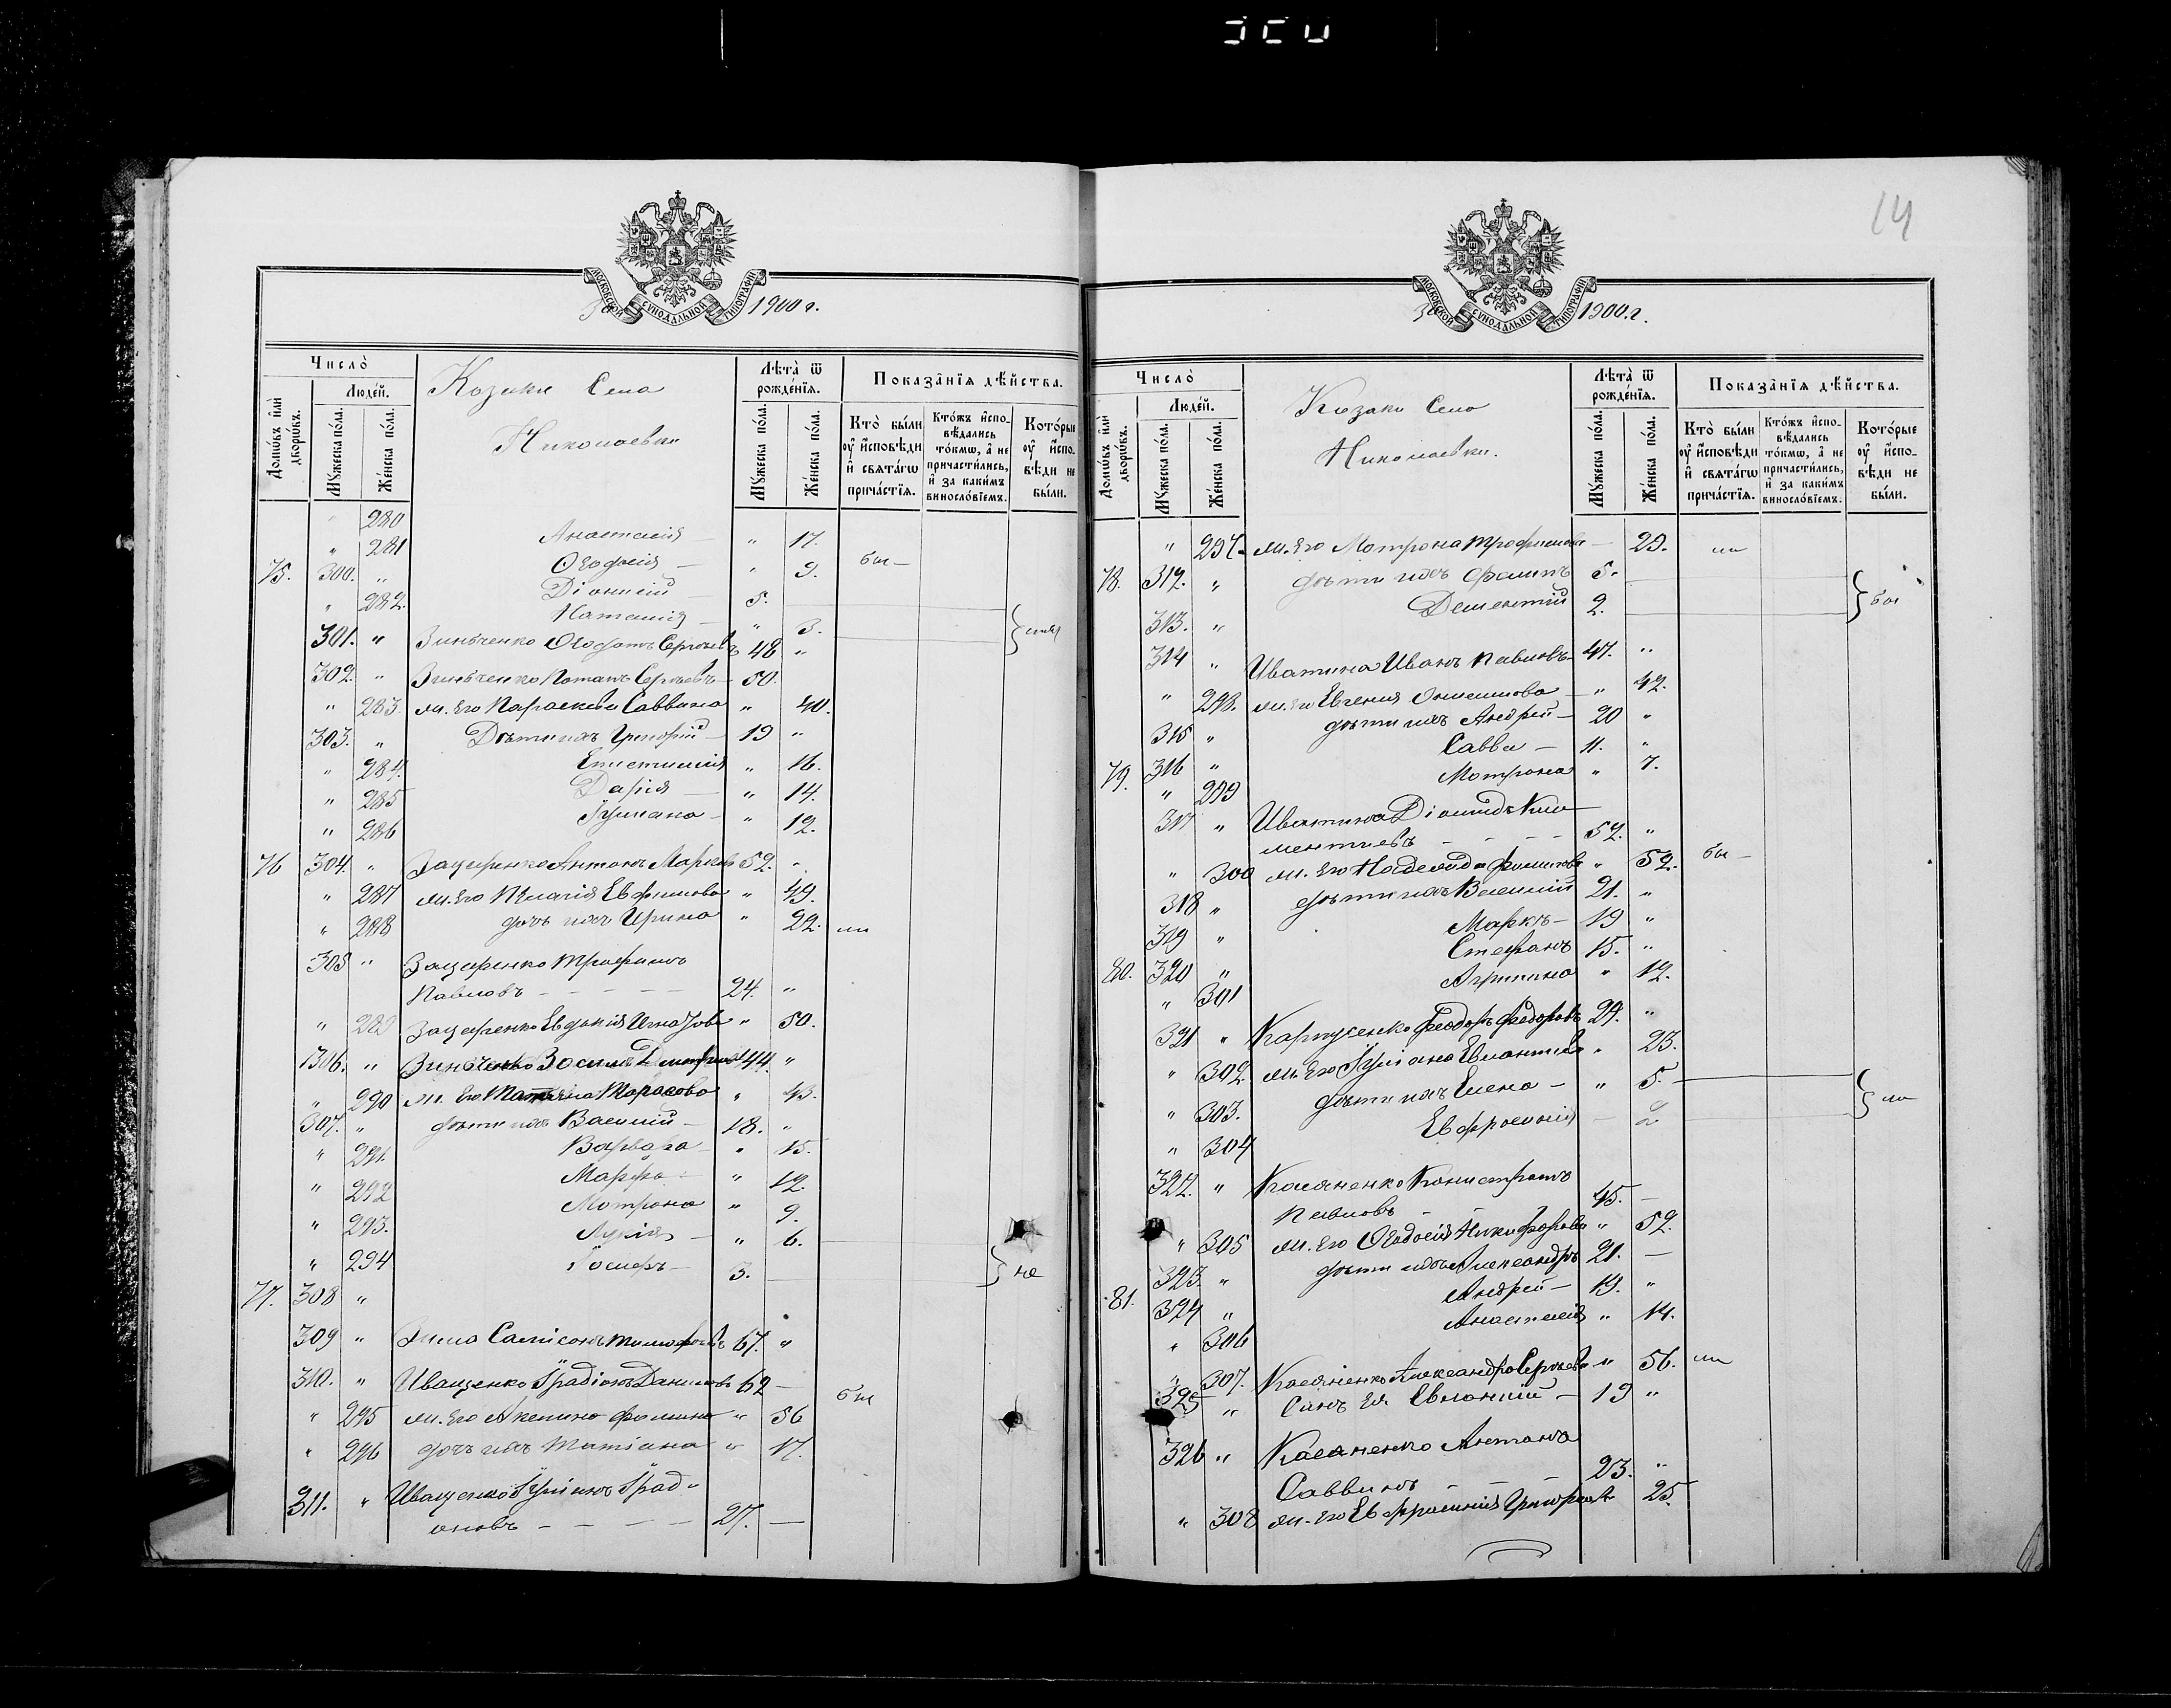 14
МОСКОВСКОЙ СѴНОДАЛЬНОЙ ТИПОГРАФІИ
За 1900 г.
Число̀
Домѡ́въ и҆лѝ дворѡ́въ.
Люде́й.
Мꙋ́жеска по́ла.
Же́нска по́ла.
Козаки Села
Николаевки
Лѣта̀ ѿ рожде́нїѧ.
Мꙋ́жеска по́ла.
Же́нска по́ла.
Показа̑нїѧ дѣ́йства.
Кто̀ бы́ли
ᲂу҆ и҆сповѣ́ди
и҆ свѧта́гѡ
прича́стїѧ.
Кто́жъ и҆спо-
вѣ́дались
то́кмѡ, а҆ не
причасти́лись,
и҆ за каки́мъ
винослѡ́вїемъ.
Кото́рые
ᲂу҆ и҆спо-
вѣ́ди не
бы́ли.
" 280 Анастасія — " 17.
" 281 Ѳеодосія — " 9. бы—
75. 300. " Діонисій — 5.
" 282. Наталія — " 3.
301. " Зинѣченко Ѳеодотъ Сергѣевъ 48 "
302. " Зинѣченко Потапъ Сергѣевъ — 50.
" 283. ж. его Параскева Саввина " 40.
303. " Дѣти ихъ Григорій — 19 "
" 284. Епистимія " 16.
" 285 Дарія — " 14.
" 286 Іуліана — " 12.
76 304. " Зацаренко Антонъ Марковъ 52. "
" 287 ж. его Пелагія Евфимова " 49.
" 288 дочь ихъ Ирина " 22. ли
305 " Зацаренко Трофимъ
Павловъ — — — — — 24. "
" 289 Зацаренко Евдокія Игнатова " 50.
306. " Зинѣченко Василъ Дмитріевъ 44 "
" 290 ж. его Татіана Тарасова " 43.
307. " дѣти ихъ Василій — 18. "
" 291. Варвара — " 15.
" 292 Марфа — " 12.
" 293. Мотрона " 9.
" 294 Лукія — " 6.
77. 308 " Іосифъ — 3. — не
309 " Зима Сампсонъ Тимофѣевъ 67. "
310. " Иващенко Іродіонъ Даниловъ 62 —
" 295 ж. его Акилина Фомина " 56 бы
" 296 дочь ихъ Татіана " 17.
311. " Иващенко Іуліанъ Ірад-
оновъ — — — — 27. —
МОСКОВСКОЙ СѴНОДАЛЬНОЙ ТИПОГРАФІИ
За 1900. г.
Число̀
Домѡ́въ и҆лѝ дворѡ́въ.
Люде́й.
Мꙋ́жеска по́ла.
Же́нска по́ла.
Козаки Села
Николаевки.
Лѣта̀ ѿ рожде́нїѧ.
Мꙋ́жеска по́ла.
Же́нска по́ла.
Показа̑нїѧ дѣ́йства.
Кто̀ бы́ли
ᲂу҆ и҆сповѣ́ди
и҆ свѧта́гѡ
прича́стїѧ.
Кто́жъ и҆спо-
вѣ́дались
то́кмѡ, а҆ не
причасти́лись,
и҆ за каки́мъ
винослѡ́вїемъ.
Кото́рые
ᲂу҆ и҆спо-
вѣ́ди не
бы́ли.
" 297. ж. его Мотрона Трофимова — 29. ли
78. 312. " дѣти ихъ Филипъ 5.
313. " Дементій 2. бы
314 " Иватина Иванъ Павловъ — 47. "
" 298. ж. его Евгенія Онисимова — " 42.
315 " дѣти ихъ Андрей — 20 "
79. 316 " Савва — 11. "
" 299 Мотрона " 7.
317 " Иватина Діомидъ Кли-
ментіевъ — — — 52. "
" 300 ж. его Надежда Филипова " 52. бы —
318 " дѣти ихъ Василій 21. "
319 " Маркъ — 19 "
80. 320 " Стефанъ 15. "
" 301 Агрипина " 12.
321 " Карпусенко Феодоръ Федоровъ 24. "
" 302. ж. его Іуліана Евлампіева " 23.
" 303. дѣти ихъ Елена — " 5.
" 304 Евфросинія — 2 ли
322. " Касяненко Калистратъ
Павловъ — — 45. —
" 305 ж. его Ѳеодосія Никифорова " 52.
323. " дѣти ихъ Александръ 21. —
81. 324 " Андрей — 19. "
" 306 Анастасія " 14.
" 307. Касяненко Александра Сергѣева " 56. ли
325 " Сынъ ея Евлампій — 19 "
326 " Касяненко Антонъ
Саввинъ — — — 23. "
" 308 ж. его Евфросинія Григорьева 25.